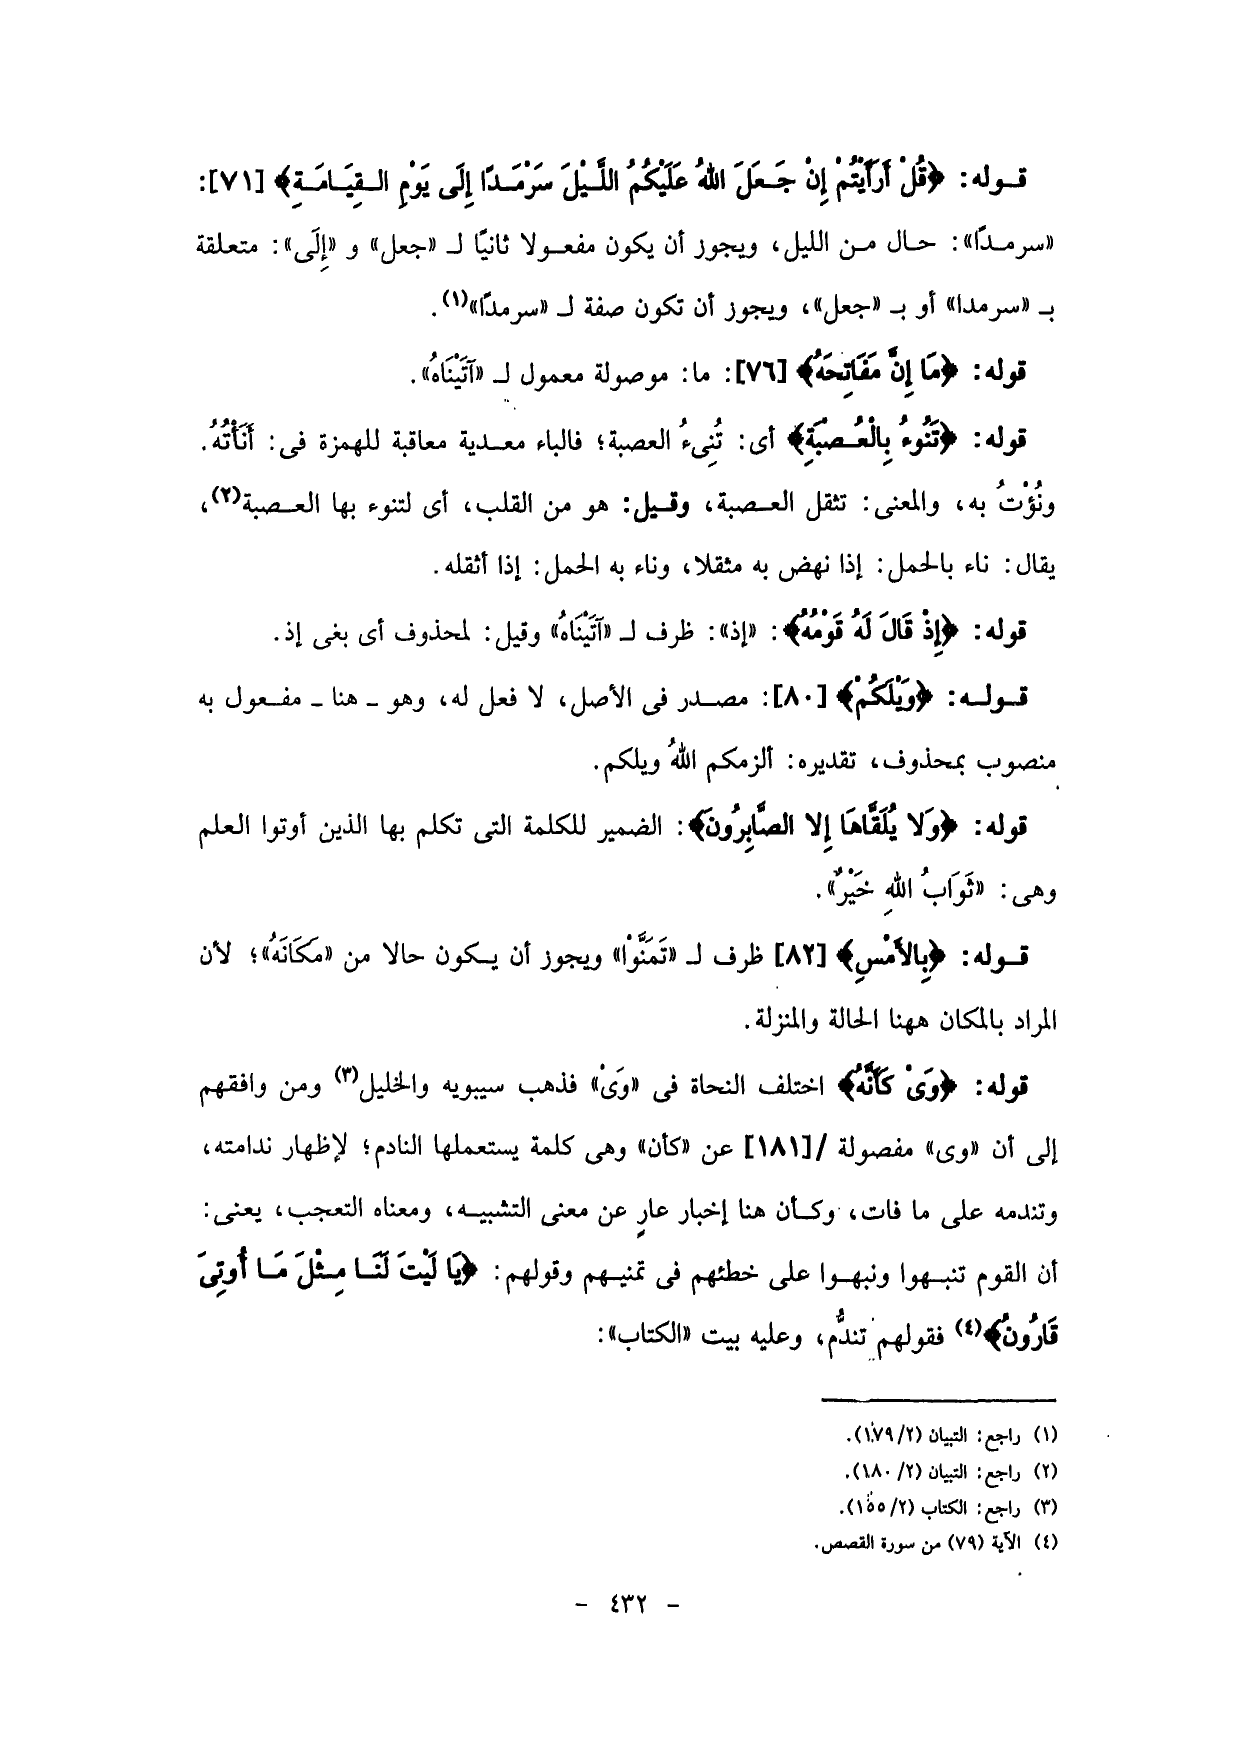 قوله: ﴿قُلْ أَرَأَيْتُمْ إِنْ جَعَلَ اللهُ عَلَيْكُمُ اللَّيْلَ سَرْمَدًا إِلَى يَوْمِ القِيَامَةِ﴾ [٧١]:
«سرمدًا»: حال من الليل، ويجوز أن يكون مفعولا ثانيًا لـ «جعل» و «إِلَى»: متعلقة
بـ «سرمدا» أو بـ «جعل»، ويجوز أن تكون صفة لـ «سرمدًا»(١).
قوله: ﴿مَا إِنَّ مَفَاتِحَهُ﴾ [٧٦]: ما: موصولة معمول لـ «آتَيْنَاهُ».
قوله: ﴿تَنُوءُ بِالْعُصبَةِ﴾ أى: تُنِىءُ العصبة؛ فالباء معدية معاقبة للهمزة فى: أَنَأْتُهُ.
ونُؤْتُ به، والمعنى: تثقل العصبة، وقيل: هو من القلب، أى لتنوء بها العصبة(٢)،
يقال: ناء بالحمل: إذا نهض به مثقلا، وناء به الحمل: إذا أثقله.
قوله: ﴿إِذْ قَالَ لَهُ قَوْمُهُ﴾: «إذ»: ظرف لـ «آتَيْنَاهُ» وقيل: لمحذوف أى بغى إذ.
قوله: ﴿وَيْلَكُمْ﴾ [٨٠]: مصدر فى الأصل، لا فعل له، وهو ـ هنا ـ مفعول به
منصوب بمحذوف، تقديره: ألزمكم اللهُ ويلكم.
قوله: ﴿وَلا يُلَقَّاهَا إِلا الصَّابِرُونَ﴾: الضمير للكلمة التى تكلم بها الذين أوتوا العلم
وهى: «ثَوَابُ اللهِ خَيْرٌ».
قوله: ﴿بِالأَمْسِ﴾ [٨٢] ظرف لـ «تَمَنَّوْا» ويجوز أن يكون حالا من «مَكَانَهُ»؛ لأن
المراد بالمكان ههنا الحالة والمنزلة.
قوله: ﴿وَىْ كَأَنَّهُ﴾ اختلف النحاة فى «وَىْ» فذهب سيبويه والخليل(٣) ومن وافقهم
إلى أن «وى» مفصولة /[١٨١] عن «كأن» وهى كلمة يستعملها النادم؛ لإظهار ندامته،
وتندمه على ما فات، وكأن هنا إخبار عارٍ عن معنى التشبيه، ومعناه التعجب، يعنى:
أن القوم تنبهوا ونبهوا على خطئهم فى تمنيهم وقولهم: ﴿يَا لَيْتَ لَنَا مِثْلَ مَا أُوتِىَ
قَارُونُ﴾(٤) فقولهم تندُّم، وعليه بيت «الكتاب»:
(١) راجع: التبيان (٢/ ١٧٩).
(٢) راجع: التبيان (٢/ ١٨٠).
(٣) راجع: الكتاب (٢/ ١٥٥).
(٤) الآية (٧٩) من سورة القصص.
- ٤٣٢ -